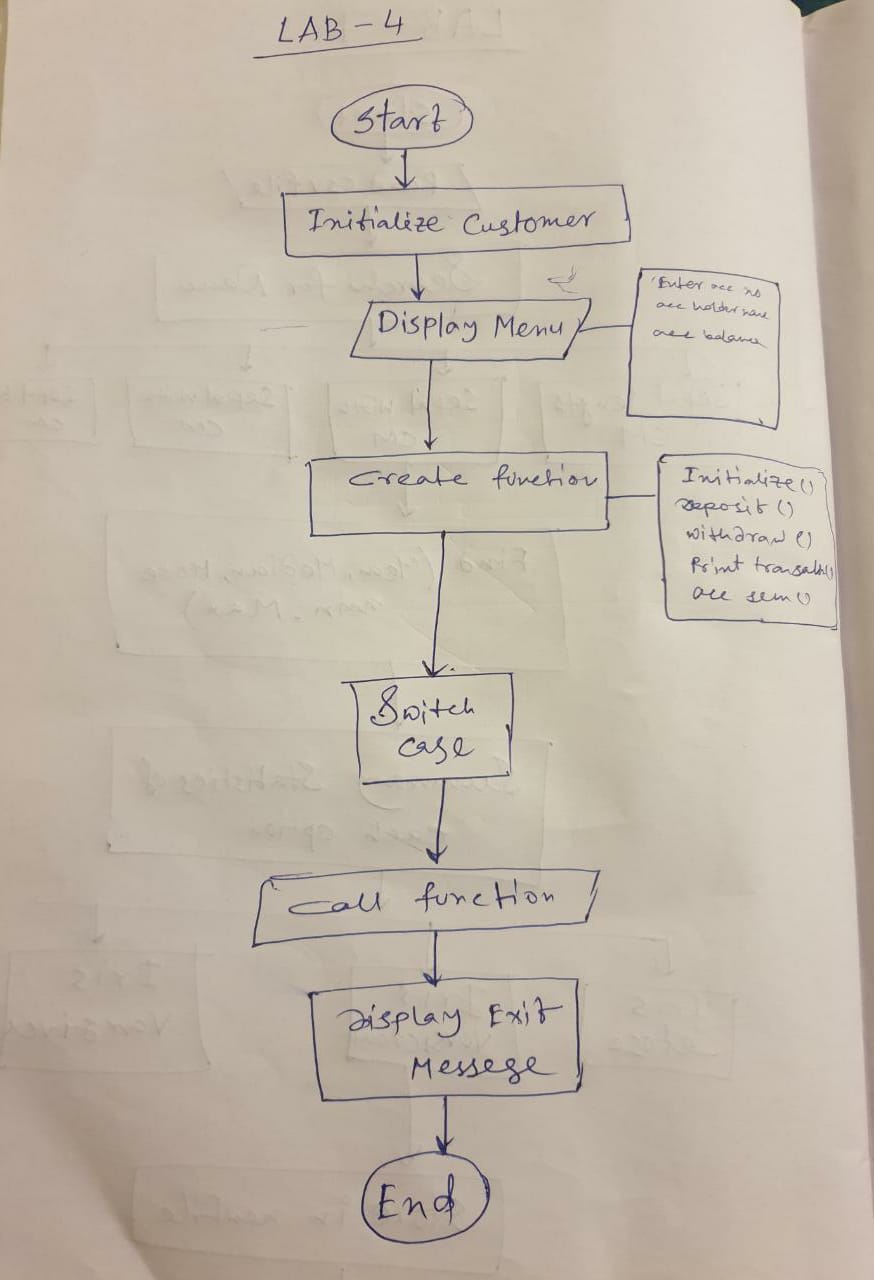 LAB-4
Start
Initialize Customer
Display Menu
Enter acc no
acc holder name
acc balance
Create function
Initialize()
Deposit()
withdraw()
Print
acc sum()
Switch
case
Call function
Display Exit
Messege
End